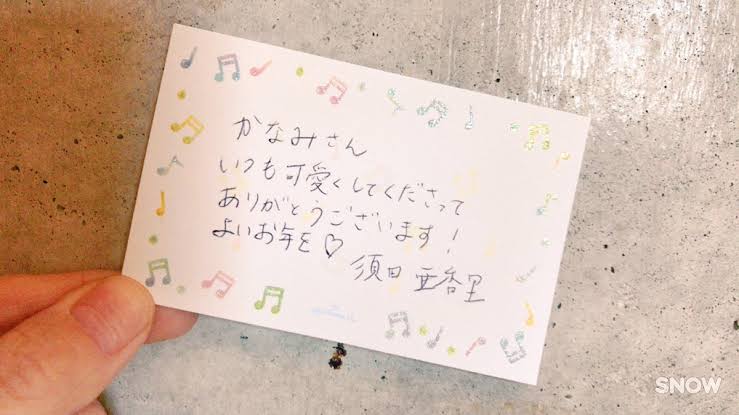 かなみさん
いつも可愛くしてくださって
ありがとうございます!
よいお年を♡
須田 亜香里
SNOW